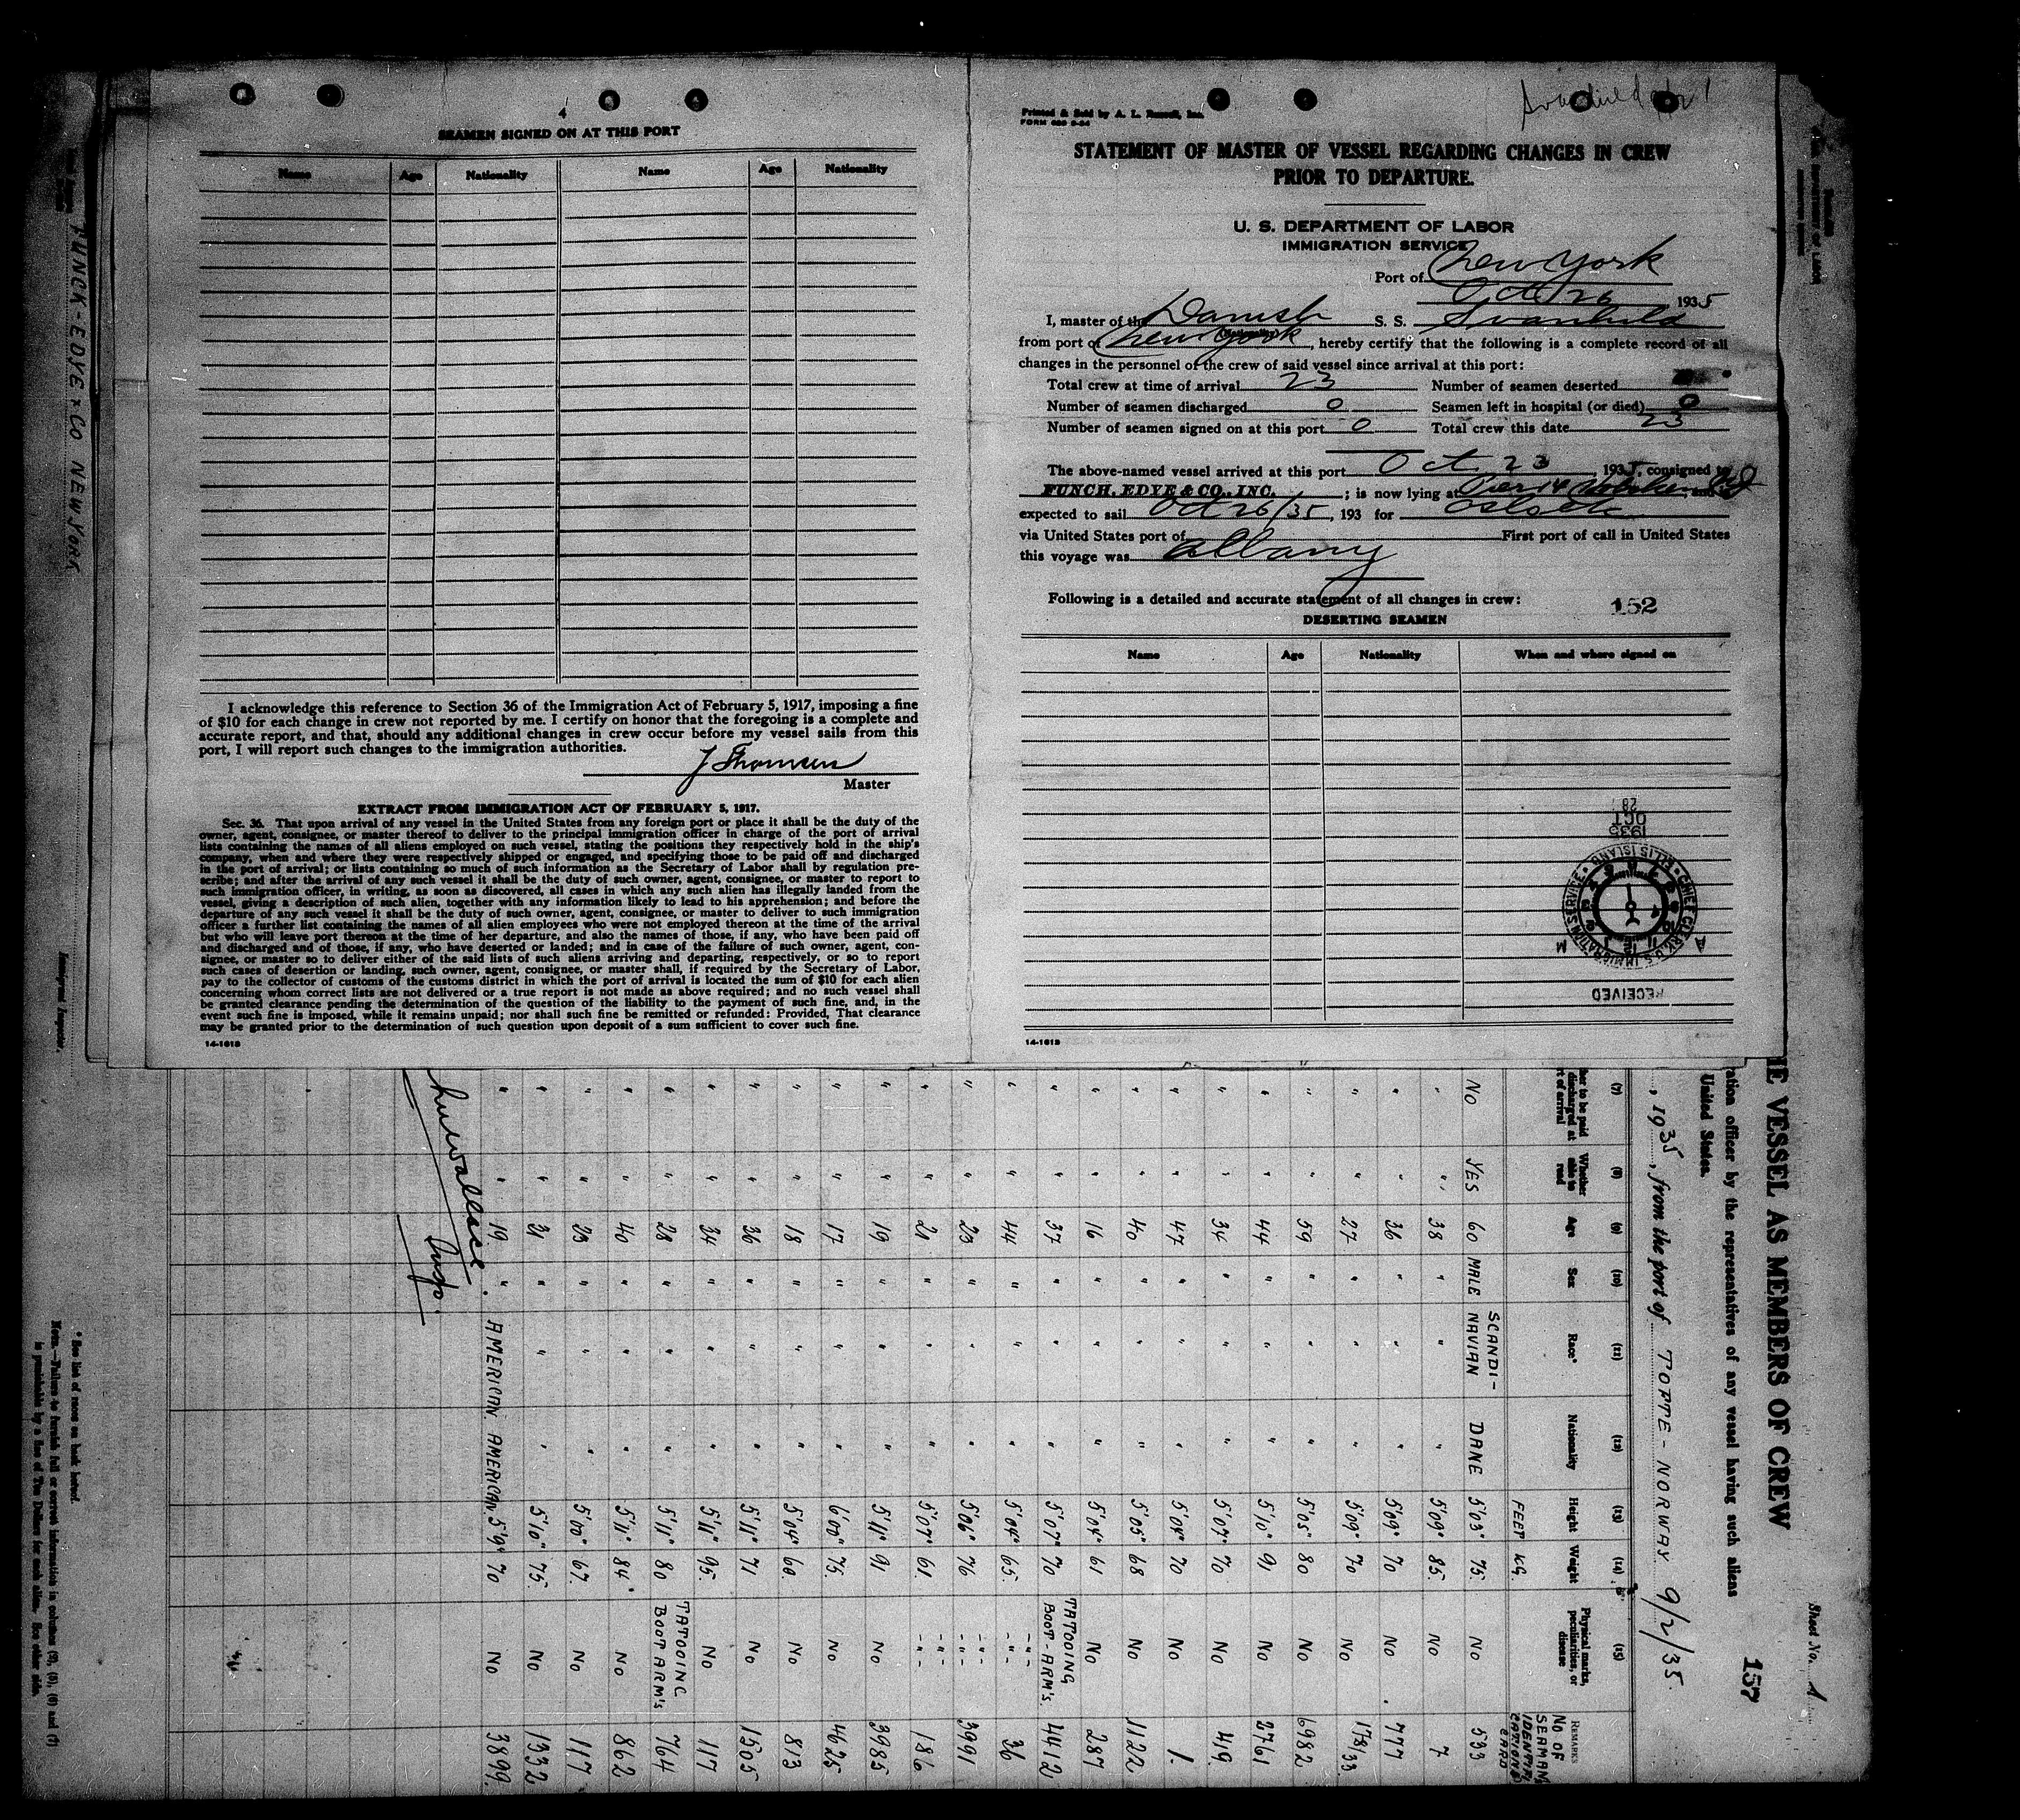 4
SEAMEN SIGNED ON AT THIS PORT
Name Age Nationality Name Age Nationality
I acknowledge this reference to Section 36 of the Immigration Act of February 5, 1917, imposing a fine
of $10 for each change in crew not reported by me. I certify on honor that the foregoing is a complete and
accurate report, and that, should any additional changes in crew occur before my vessel sails from this
port, I will report such changes to the immigration authorities.
J Thomsen
Master
EXTRACT FROM IMMIGRATION ACT OF FEBRUARY 5, 1917.
Sec. 36. That upon arrival of any vessel in the United States from any foreign port or place it shall be the duty of the
owner, agent, consignee, or master thereof to deliver to the principal immigration officer in charge of the port of arrival
lists containing the names of all aliens employed on such vessel, stating the positions they respectively hold in the ship's
company, when and where they were respectively shipped or engaged, and specifying those to be paid off and discharged
in the port of arrival; or lists containing so much of such information as the Secretary of Labor shall by regulation pre-
scribe; and after the arrival of any such vessel it shall be the duty of such owner, agent, consignee, or master to report to
such immigration officer, in writing, as soon as discovered, all cases in which any such alien has illegally landed from the
vessel, giving a description of such alien, together with any information likely to lead to his apprehension; and before the
departure of any such vessel it shall be the duty of such owner, agent, consignee, or master to deliver to such immigration
officer a further list containing the names of all alien employees who were not employed thereon at the time of the arrival
but who will leave port thereon at the time of her departure, and also the names of those, if any, who have been paid off
and discharged and of those, if any, who have deserted or landed; and in case of the failure of such owner, agent, con-
signee, or master so to deliver either of the said lists of such aliens arriving and departing, respectively, or so to report
such cases of desertion or landing, such owner, agent, consignee, or master shall, if required by the Secretary of Labor,
pay to the collector of customs of the customs district in which the port of arrival is located the sum of $10 for each alien
concerning whom correct lists are not delivered or a true report is not made as above required; and no such vessel shall
be granted clearance pending the determination of the question of the liability to the payment of such fine, and, in the
event such fine is imposed, while it remains unpaid; nor shall such fine be remitted or refunded: Provided, That clearance
may be granted prior to the determination of such question upon deposit of a sum sufficient to cover such fine.
14-1613
Printed & Sold by A. L. Russell, Inc.
STATEMENT OF MASTER OF VESSEL REGARDING CHANGES IN CREW
PRIOR TO DEPARTURE.
U. S. DEPARTMENT OF LABOR
IMMIGRATION SERVICE
Port of New York
Oct 26, 1935
I, master of the Danish S. S. Svanhild
(Nationality)
from port of New York, hereby certify that the following is a complete record of all
changes in the personnel of the crew of said vessel since arrival at this port:
Total crew at time of arrival 23 Number of seamen deserted
Number of seamen discharged 0 Seamen left in hospital (or died) 0
Number of seamen signed on at this port 0 Total crew this date 23
The above-named vessel arrived at this port Oct 23, 1935, consigned to
FUNCH, EDYE & CO., INC.; is now lying at Pier 14 Hoboken NJ and
expected to sail Oct 26/35, 193 for
via United States port of First port of call in United States
this voyage was Albany
Following is a detailed and accurate statement of all changes in crew:
152
DESERTING SEAMEN
Name Age Nationality When and where signed on
RECEIVED
CHIEF CLERK U.S. IMMIGRATION SERVICE ELLIS ISLAND
A M
1935
OCT
28
14-1613
FUNCK-EDYE & CO NEW YORK
Immigrant Inspector.
Sheet No. 1
157
THE VESSEL AS MEMBERS OF CREW
ration officer by the representatives of any vessel having such aliens
United States.
, 1935, from the port of TOPTE - NORWAY 9/2/35.
(7) (8) (9) (10) (11) (12) (13) (14) (15)
her to be paid discharged at rt of arrival
Whether able to read
Age
Sex
Race*
Nationality
Height
Weight
Physical marks, peculiarities, or disease
REMARKS
FEET KG. No OF SEAMAN IDENTIFICATIONS CARD
NO YES 60 MALE SCANDI-NAVIAN DANE 5'03" 75. No 533
" " 38 " " " 5'09" 85. No 7
" " 36 " " " 5'09" 70 No 777
" " 27 " " " 5'09" 70 No 178/33
" " 59 " " " 5'05" 80 No 6982
" " 44 " " " 5'10" 91 No 2761
" " 34 " " " 5'07" 70 No 49.
" " 47 " " " 5'08" 70 No 1.
" " 40 " " " 5'05" 68 No 1122
" " 16 " " " 5'04" 61 No 287
" " 37 " " " 5'07" 70 TATOOING BOOT-ARM'S. 4412
" " 44 " " " 5'04" 65. -"- 36
" " 23 " " " 5'06" 76 -"- 3991
" " 21 " " " 5'07" 61 -"- 186
" " 19 " " " 5'11" 91 No 3985
" " 17 " " " 6'00" 75. No 4625
" " 18 " " " 5'04" 60. No 813
" " 36 " " " 5'11" 71 No 1505
" " 34 " " " 5'11" 95. No 117
" " 28 " " " 5'11" 80 TATOOING BOOT ARM'S 764
" " 40 " " " 5'11" 84 No 862
" " 23 " " " 5'00" 67. No 117
" " 21 " " " 5'10" 75. No 1332
" " 19. " AMERICAN AMERICAN. 5'9" 70 No 3899.
Wallace
Insp.
* See list of races on back hereof.
NOTE.—Failure to furnish full or correct information in columns (2), (5), (6) and (7)
is punishable by a fine of Ten Dollars for each alien. See other side.